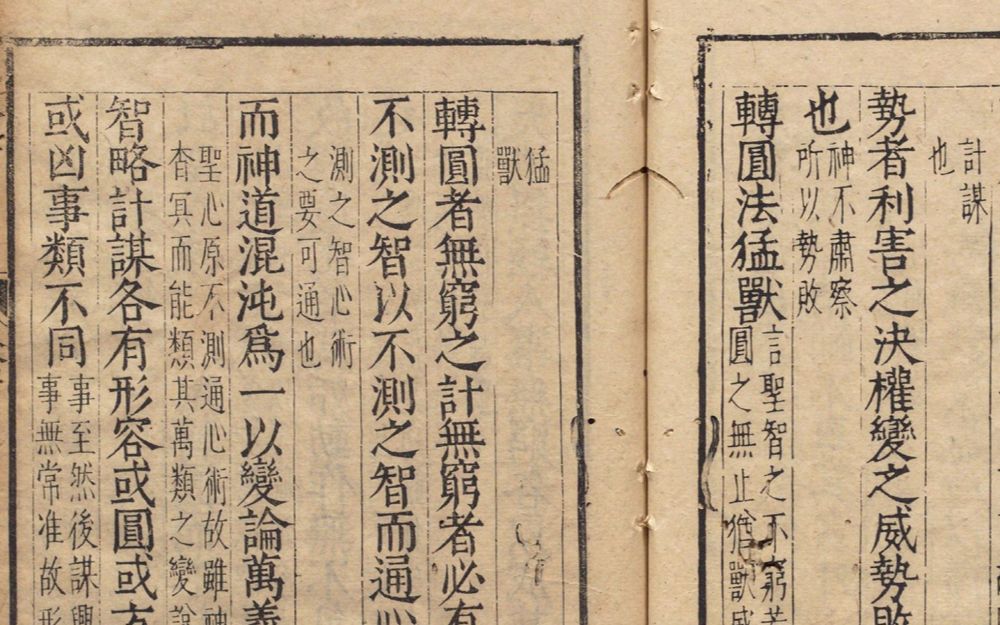 計謀
也
勢者利害之決權變之威勢敗
也
神不肅察
所以勢敗
轉圓法猛獸
言聖智之不窮若
圓之無止猶獸威
猛
獸
轉圓者無窮之計無窮者必有
不測之智以不測之智而通心
測之智心術
之要可通也
而神道混沌爲一以變論萬義
聖心原不測通心術故雖神
杳冥而能類其萬類之變說
智略計謀各有形容或圓或方
或凶事類不同
事至然後謀興
事無常准故形